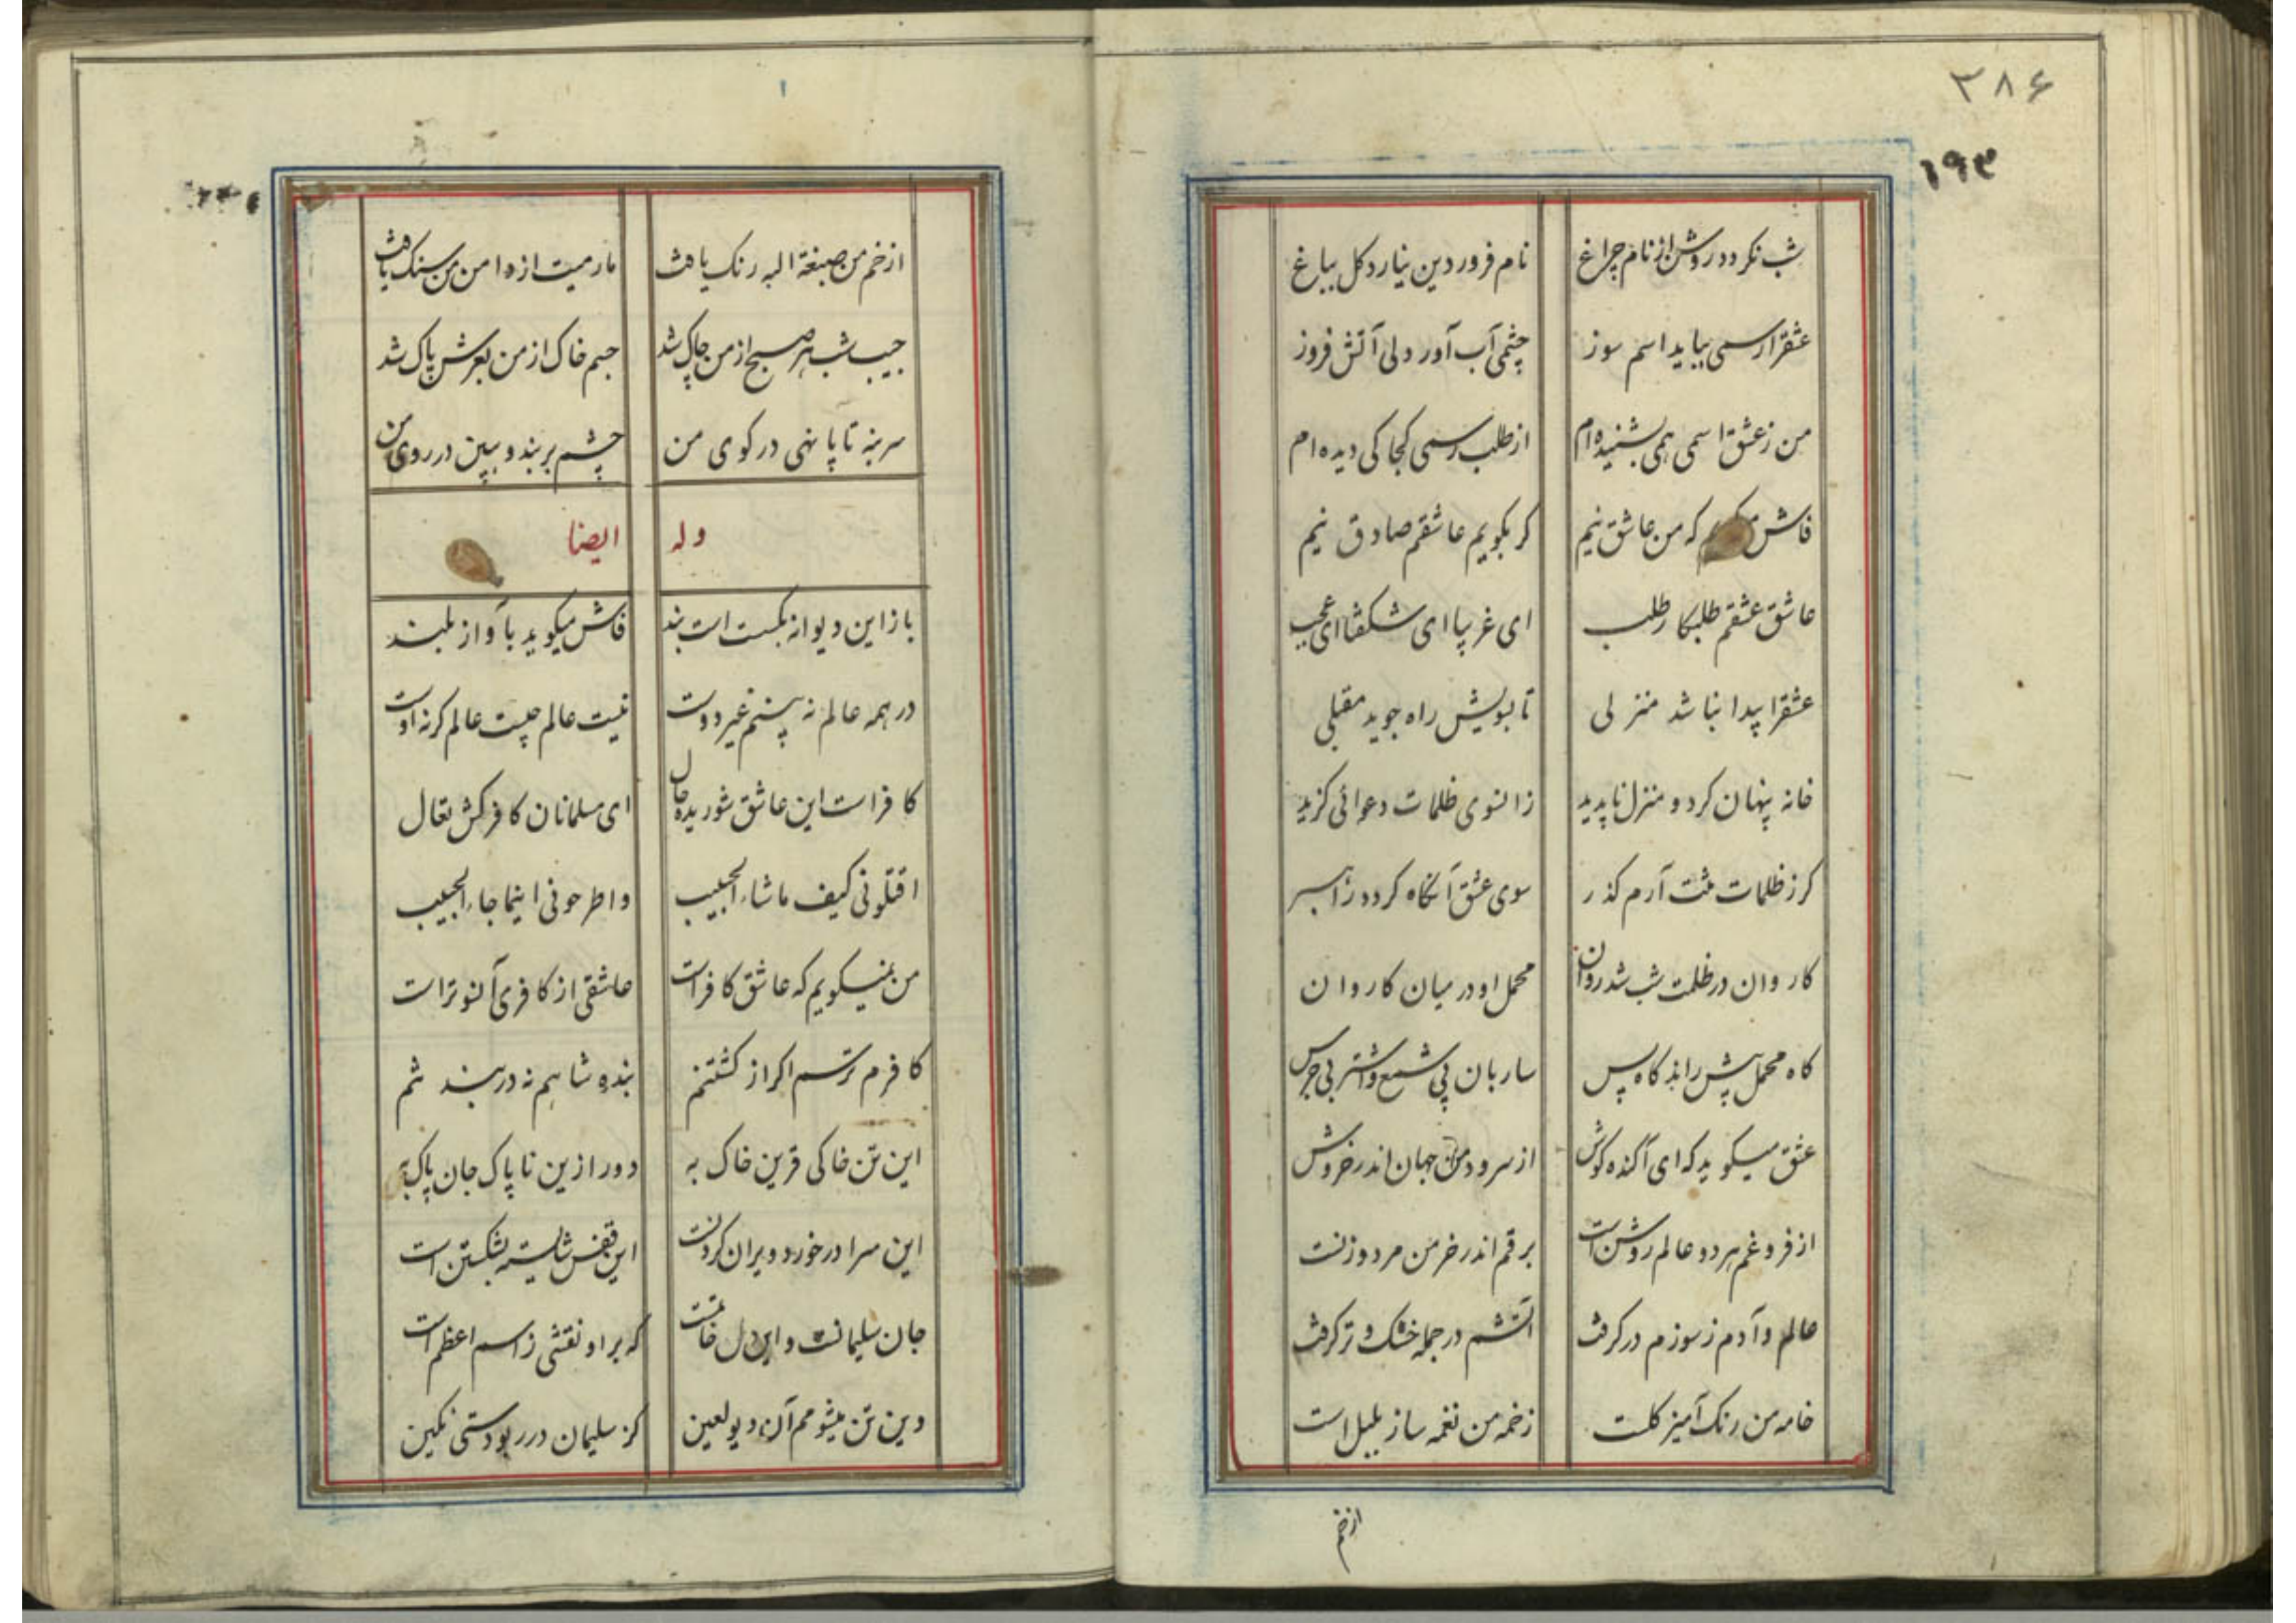 ۳۸۶
۱۹۳
شب نکردد روشن از نام چراغ نام فروردین نیارد کل بباغ
عشقرا رسمی بباید اسم سوز چشمی آب آور دلی آتش فروز
من ز عشق اسمی همی بشنیده‌ام از طلب رسمی کجا کی دیده‌ام
فاش که من عاشق نیم کر بکویم عاشقم صادق نیم
عاشق عشقم طلبکار طلب ای غریبا ای شکفتا ای عجب
عشقرا پیدا نباشد منزلی تا بسویش راه جوید مقبلی
خانه پنهان کرد و منزل ناپدید زانسوی ظلمات دعوائی کزید
کر ز ظلمات منت آرم کذر سوی عشق آنکاه کردد راهبر
کاروان در ظلمت شب شد روان محمل او در میان کاروان
کاه محمل پیش راند کاه پس ساربان بی شمع و اشتر بی جرس
عشق میکوید که ای آکنده کوش از سرود من جهان اندر خروش
از فروغم هر دو عالم روشن است برقم اندر خرمن مرد و زنست
عالم و آدم ز سوزم در کرفت آتشم در جمله خشک و تر کرفت
خامه من رنک آمیز کلست زخمه من نغمه ساز بلبل است
از خم
از خم من صبغة الله رنک یافت مارمیت از دامن من سنک یافت
جیب شب هر صبح از من چاک شد جسم خاک از من بعرش پاک شد
سر بنه تا پا نهی در کوی من چشم بربند و ببین در روی من
وله ایضا
باز این دیوانه بکسست است بند فاش میکوید بآواز بلند
در همه عالم نه بینم غیر دوست نیست عالم چیست عالم کرنه اوست
کافر است این عاشق شوریده حال ای مسلمانان کافرکش تعال
اقتلونی کیف ما شاء الحبیب واطرحونی اینما جاء الحبیب
من نمیکویم که عاشق کافر است عاشقی از کافری آنسوتر است
کافرم ترسم اکر از کشتنم بنده شاهم نه در بند تنم
این تن خاکی قرین خاک به دور ازین ناپاک جان پاک به
این سرا در خورد ویران کردنست این قفس شایسته بشکستن است
جان سلیمانست و این دل خاتمست که بر او نقشی ز اسم اعظم است
وین تن میشومم آن دیو لعین کز سلیمان در ربودستی نکین